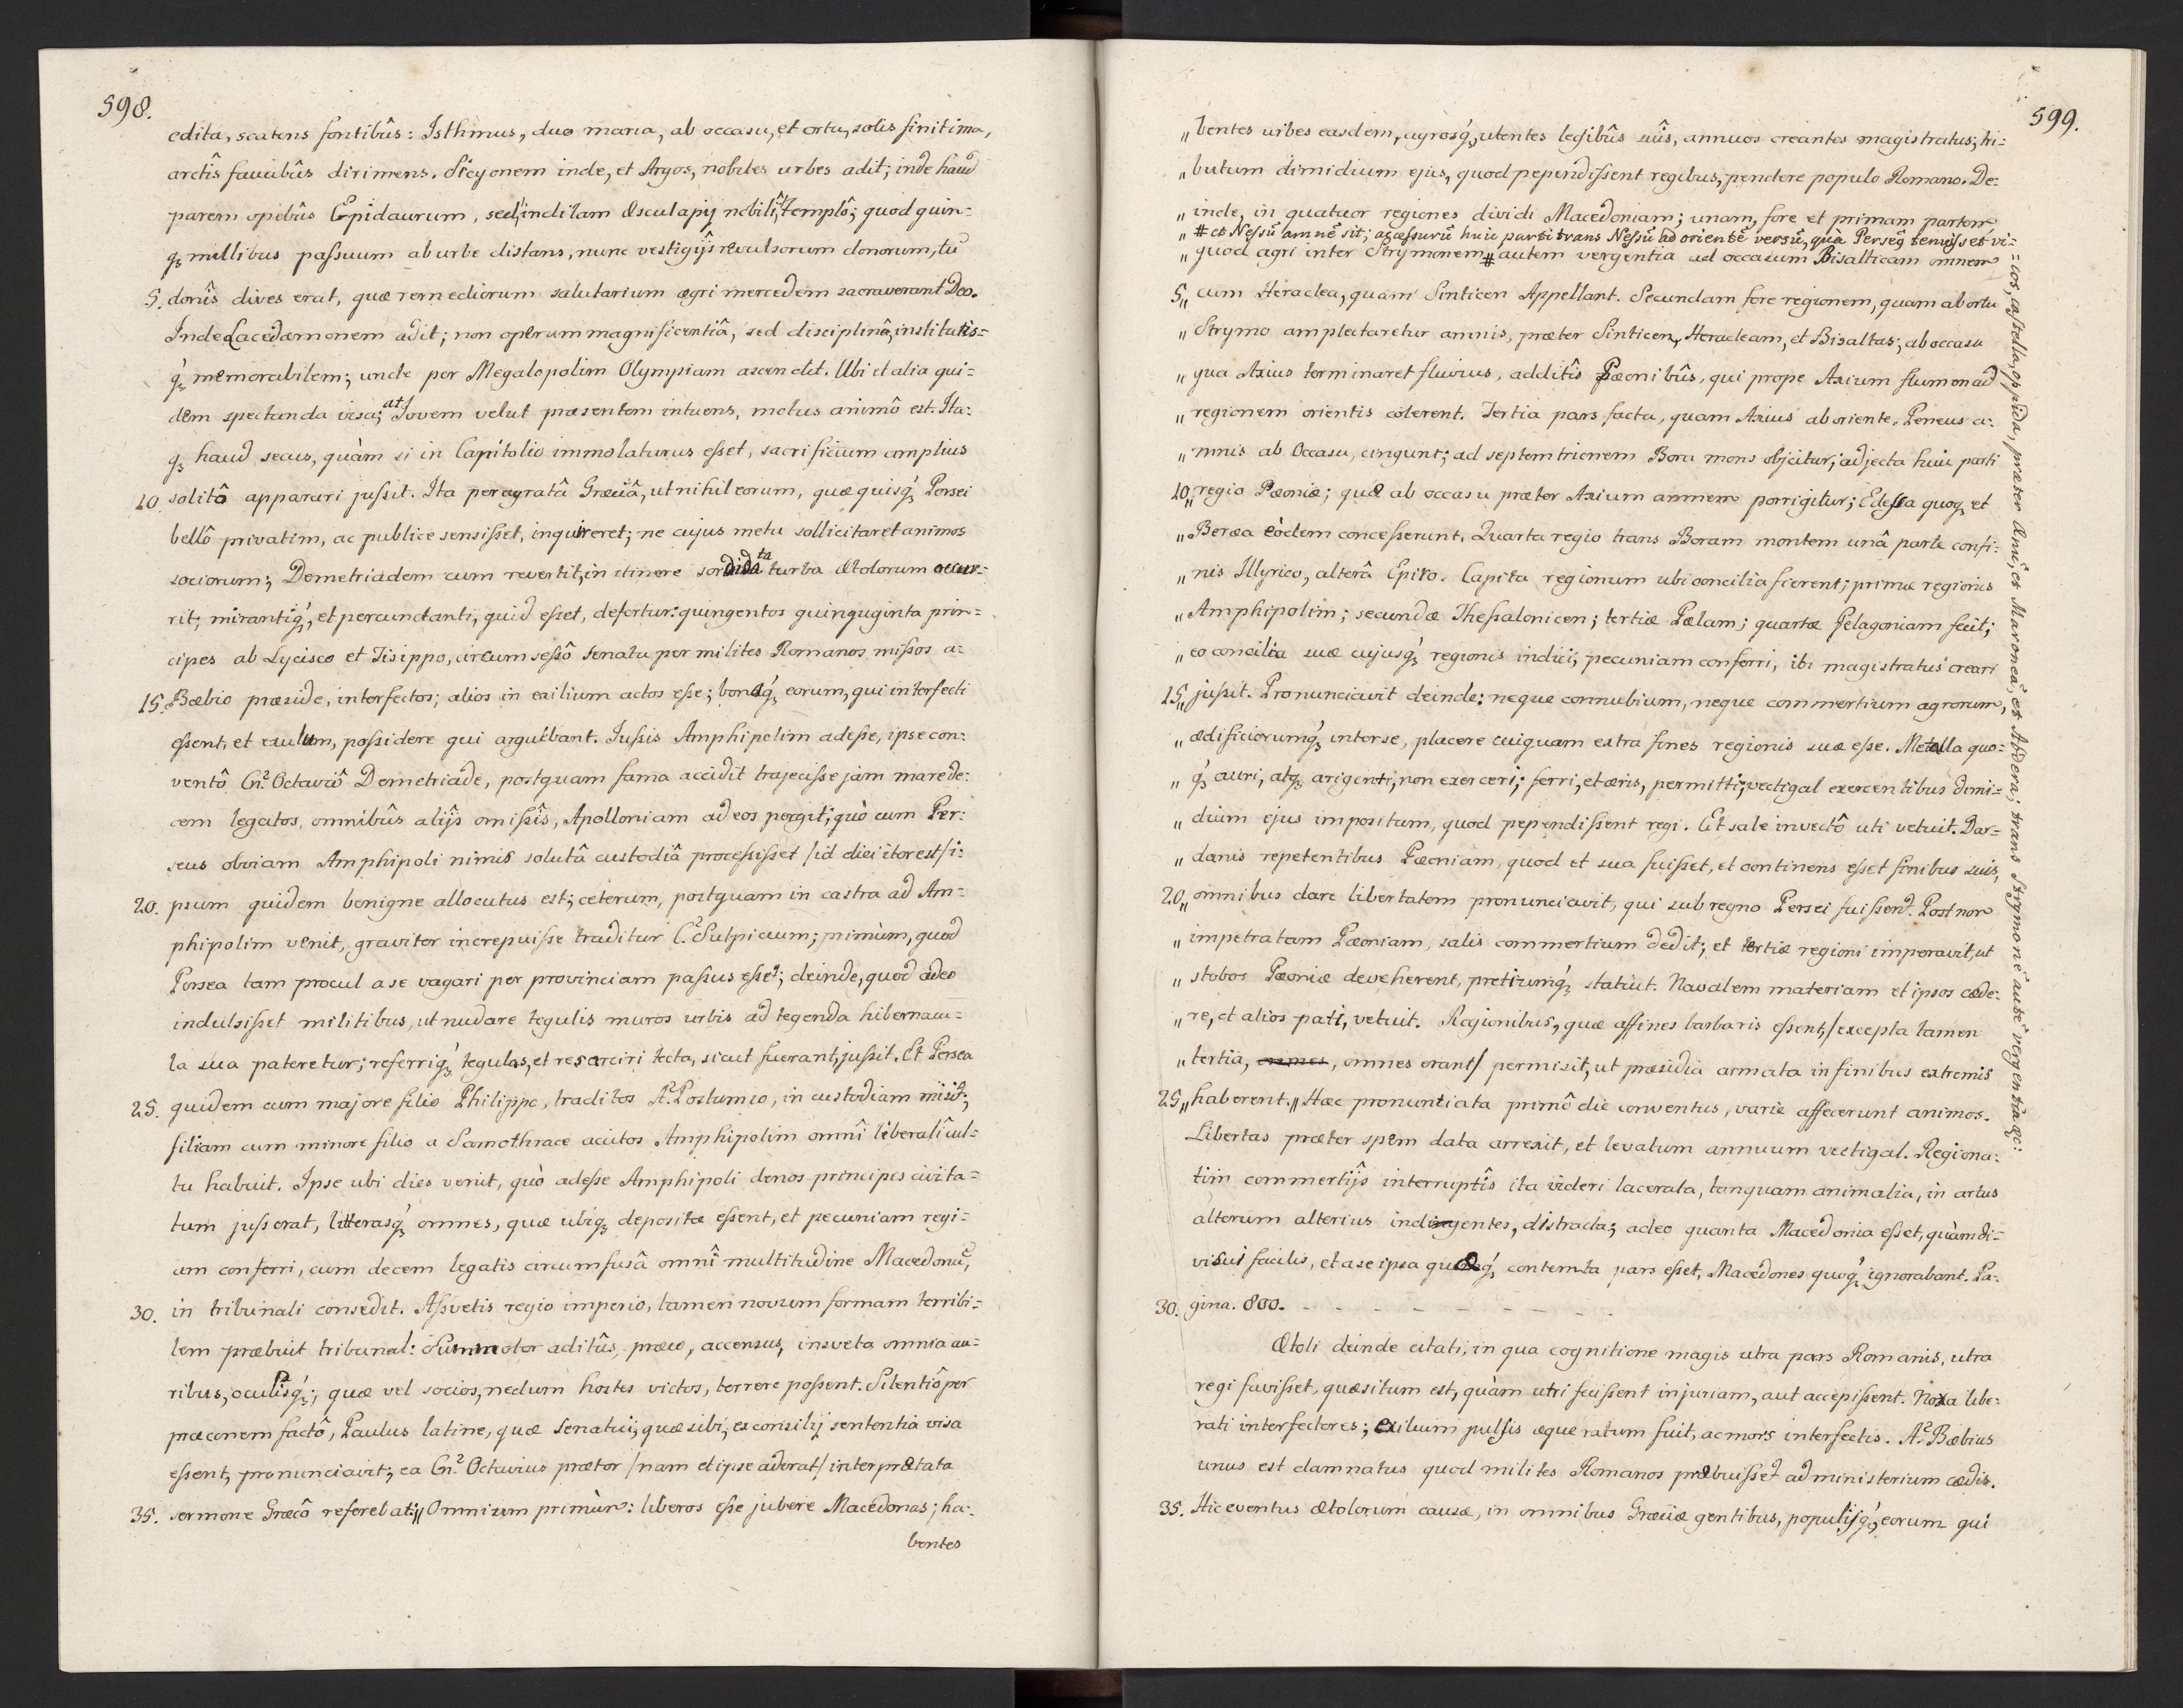 598.
edita, scatens fontibûs: Isthmus, duo maria, ab occasu, et ortu, solis finitima,
arctîs faucibûs dirimens. Sicyonem inde, et Argos, nobiles urbes adit; inde haud
parem opibûs Epidaurum, sed, inclitam Æsculapij nobilî templô; quod quin=
qꝫ millibus passuum ab urbe distans, nunc vestigijs revulsorum donorum, tu
5. donîs dives erat, quæ remediorum salutarium ægri mercedem sacraverant Deo.
Inde Lacedæmonem adit; non operum magnificentiâ, sed disciplinâ, institutis=
qꝫ memorabilem; unde per Megalopolim Olympiam ascendit. Ubi et alia qui=
dem spectanda visa; at Jovem velut præsentem intuens, motus animô est. Ita=
qꝫ haud secus, quàm si in Capitolio immolaturus esset, sacrificium amplius
10. solitô apparari jussit. Ita peragratâ Græciâ, ut nihil eorum, quæ quisqꝫ Persei
bellô privatim, ac publice sensisset, inquireret; ne cujus metu sollicitaret animos
sociorum; Demetriadem cum revertit, in itinere sordidata turba Ætolorum occur=
rit; mirantiqꝫ, et percunctanti, quid esset, defertur: quingentos quinquaginta prin=
cipes ab Lycisco et Tisippo, circumsessô senatu per milites Romanos missos a=
15. Bæbio præside, interfectos; alios in exilium actos esse; bonaqꝫ eorum, qui interfecti
essent, et exulum, possidere qui arguebant. Jussis Amphipolim adesse, ipse con=
ventô Cn. Octaviô Demetriade, postquam fama accidit trajecisse jam mare de=
cem legatos, omnibûs alijs omissîs, Apolloniam ad eos pergit; quò cum Per=
seus obviam Amphipoli nimis solutâ custodiâ processisset /id diei iter est/ i=
20. psum quidem benigne allocutus est; ceterum, postquam in castra ad Am=
phipolim venit, graviter increpuisse traditur C. Sulpicium; primùm, quod
Persea tam procul a se vagari per provinciam passus esset; deinde, quod adeo
indulsisset militibus, ut nudare tegulis muros urbis ad tegenda hibernacu=
la sua pateretur; referriqꝫ tegulas, et resarciri tecta, sicut fuerant, jussit. Et Persea
25. quidem cum majore filio Philippo, traditos A. Postumio, in custodiam misit;
filiam cum minore filio a Samothrace accitos Amphipolim omnî liberalî cul=
tu habuit. Ipse ubi dies venit, quò adesse Amphipoli denos principes civita=
tum jusserat, litterasqꝫ omnes, quæ ubiqꝫ depositæ essent, et pecuniam regi=
am conferri, cum decem legatis circumfusâ omnî multitudine Macedonũ,
30. in tribunali consedit. Assvetis regio imperio, tamen novum formam terribi=
lem præbuit tribunal: Summotor aditûs, præco, accensus, insveta omnia au=
ribus, oculisqꝫ; quæ vel socios, nedum hostes victos, terrere possent. Silentiô per
præconem factô, Paulus latine, quæ Senatui, quæ sibi, ex consilij sententia visa
essent, pronunciavit; ea Cn. Octavius prætor /nam et ipse aderat/ interprætata
35. sermone Græcô referebat; „ Omnium primùm: liberos esse jubere Macedonas; ha=
bentes
599.
„ bentes urbes easdem, agrosqꝫ, utentes legibûs suîs, annuos creantes magistratus; tri=
„ butum dimidium ejus, quod pependissent regibus, pendere populo Romano. De=
„ inde, in quatuor regiones dividi Macedoniam; unam, fore et primam partem
„ # et Nessũ amnẽ sit; accessurũ huic parti trans Nessũ ad orientẽ versũ, quà Perseꝰ tenuisset vi=
„ quod agri inter Strymonem # autem vergentia ad occasum Bisalticam omnem
5 „ cum Heraclea, quam Sinticen Appellant. Secundam fore regionem, quam ab ortu
„ Strymo amplectaretur amnis, præter Sinticen, Heracleam, et Bisaltas; ab occasu
„ qua Axius terminaret fluvius, additîs Pæonibûs, qui prope Axium flumen ad
„ regionem orientis colerent. Tertia pars facta, quam Axius ab oriente, Peneus a=
„ mnis ab Occasu, cingunt; ad septemtrionem Bora mons objicitur; adjecta huic parti
10 „ regio Pæoniæ; quæ ab occasu præter Axium amnem porrigitur; Edessa quoqꝫ et
„ Beræa eòdem concesserunt. Quarta regio trans Boram montem unâ parte confi=
„ nis Illyrico, alterâ Epiro. Capita regionum ubi concilia fierent; primæ regionis
„ Amphipolim; secundæ Thessalonicen; tertiæ Pelam; quartæ Pelagoniam fecit;
„ eo concilia suæ cujusqꝫ regionis indici, pecuniam conferri, ibi magistratus creari
15 „ jussit. Pronunciavit deinde: neque connubium, neque commertium agrorum,
„ ædificiorumqꝫ inter se, placere cuiquam extra fines regionis suæ esse. Metalla quo=
„ qꝫ auri, atqꝫ argenti, non exerceri; ferri, et æris, permitti; vectigal exercentibus dimi=
„ dium ejus impositum, quod pependissent regi. Et sale invectô uti vetuit. Dar=
„ danis repetentibus Pæoniam, quod et sua fuisset, et continens esset finibus suis,
20 „ omnibus dare libertatem pronunciavit, qui sub regno Persei fuissent. Post non
„ impetratam Pæoniam, salis commertium dedit; et tertiæ regioni imperavit, ut
„ stobos Pæoniæ deveherent, pretiumqꝫ statuit. Navalem materiam et ipsos cæde=
„ re, et alios pati, vetuit. Regionibus, quæ affines barbaris essent, /excepta tamen
„ tertia, omnes, omnes erant/ permisit, ut præsidia armata in finibus extremis
25 „ haberent. „ Hæc pronuntiata primô die conventus, varie affecerunt animos.
Libertas præter spem data arrexit, et levatum annuum vectigal. Regiona=
tim commertijs interruptîs ita videri lacerata, tanquam animalia, in artus
alterum alterius indigentes, distracta; adeo quanta Macedonia esset, quàm di=
visui facilis, et a se ipsa quæqꝫ contemta pars esset, Macedones quoqꝫ ignorabant. Pa=
30. gina. 800. - - - - - - - - - -
Ætoli deinde citati, in qua cognitione magis utra pars Romanis, utra
regi favisset, quæsitum est, quàm utri fecissent injuriam, aut accepissent. Noxa libe=
rati interfectores; exilium pulsis æque ratum fuit, ac mors interfectis. A. Bæbius
unus est damnatus quod milites Romanos præbuisset ad ministerium cædis.
35. Hic eventus Ætolorum causæ, in omnibus Græciæ gentibus, populisqꝫ, eorum qui
= cos, castella, oppida, præter Ænũ, et Maroneã, et Abdera; trans Strymonẽ autẽ vergentia &c: